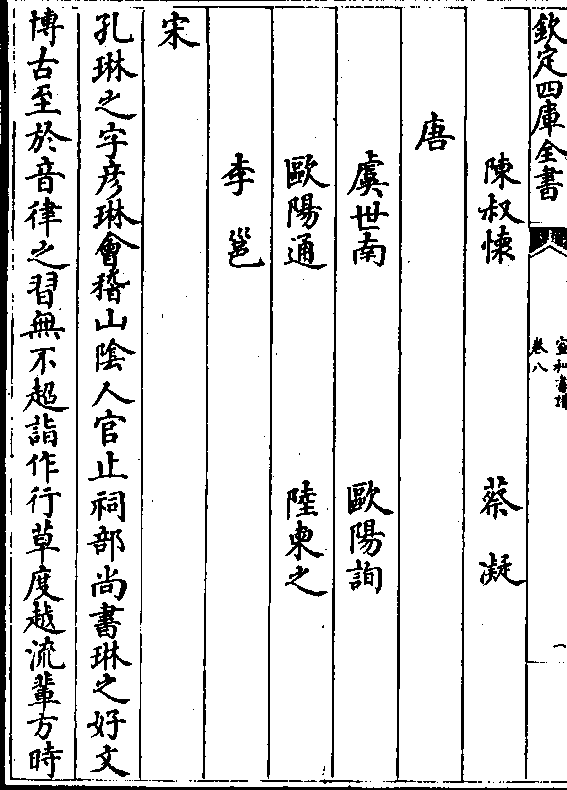 欽定四庫全書
宣和書譜
卷八
一
陳叔懐 蔡凝
唐
虞世南 歐陽詢
歐陽通 陸東之
李邕
宋
孔琳之字彦琳㑹稽山陰人官止祠部尚書琳之好文
博古至於音律之習無不超詣作行草度越流輩方時